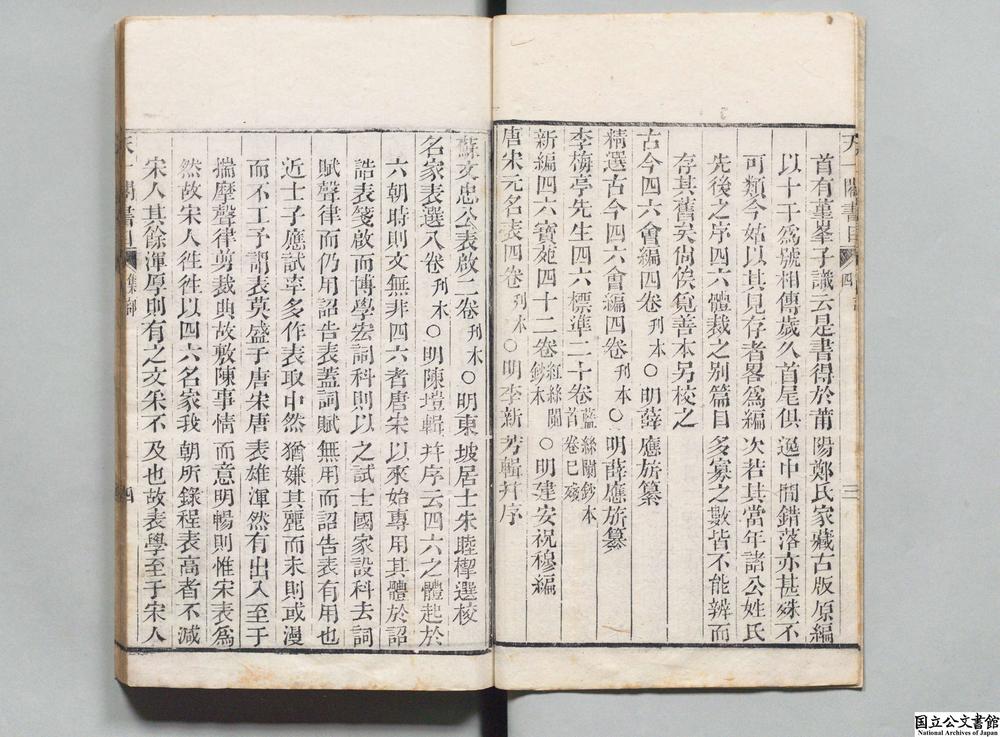 天一閣書目 四 三
首有菫峯子識云是書得於莆陽鄭氏家藏古版原編
以十干爲號相傳歲久首尾俱遜中間錯落亦甚殊不
可類今姑以其見存者畧爲編次若其當年諸公姓氏
先後之序四六體裁之别篇目多寡之數皆不能辨而
存其舊矣尚俟覓善本另校之
古今四六會編四卷刋本○明薛應旂纂
精選古今四六會編四卷刋本○明薛應旂纂
李梅亭先生四六標準二十卷藍絲闌鈔本首卷已殘
新編四六寶苑四十二卷紅絲闌鈔本○明建安祝穆編
唐宋元名表四卷刋本○明李新芳輯幷序
蘇文忠公表啟二卷刋本○明東坡居士朱睦㮮選校
名家表選八卷刋本○明陳塏輯幷序云四六之體起於
六朝時則文無非四六者唐宋以來始專用其體於詔
誥表箋啟而博學宏詞科則以之試士國家設科去詞
賦聲律而仍用詔告表蓋詞賦無用而詔告表有用也
近士子應試率多作表取中然猶嫌其麗而未則或漫
而不工予謂表莫盛于唐宋唐表雄渾然有出入至于
揣摩聲律剪裁典故敷陳事情而意明暢則惟宋表爲
然故宋人徃徃以四六名家我朝所錄程表高者不減
宋人其餘渾厚則有之文采不及也故表學至于宋人
天一閣書目 集部 四
國立公文書館
National Archives of Japan